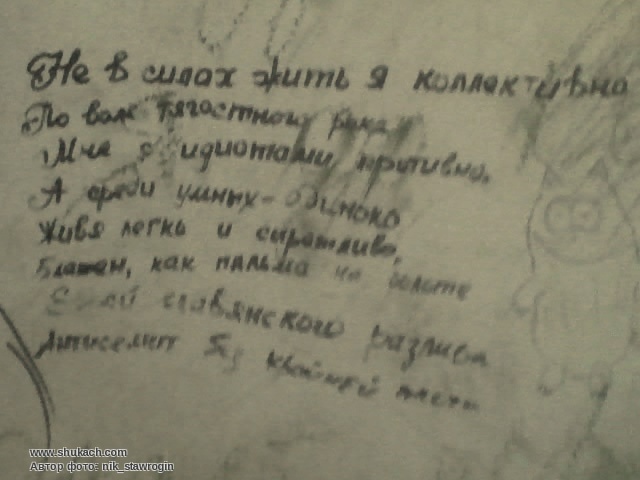 Не в силах жить я коллективно
По воле тягостного рока
Мне с идиотами противно,
А среди умных - одиноко
Живя легко и сиротливо,
Блажен, как пальма на болоте
Еврей славянского разлива
Антисемит без крайней плоти
www.shukach.com
Автор фото: nik_stawrogin